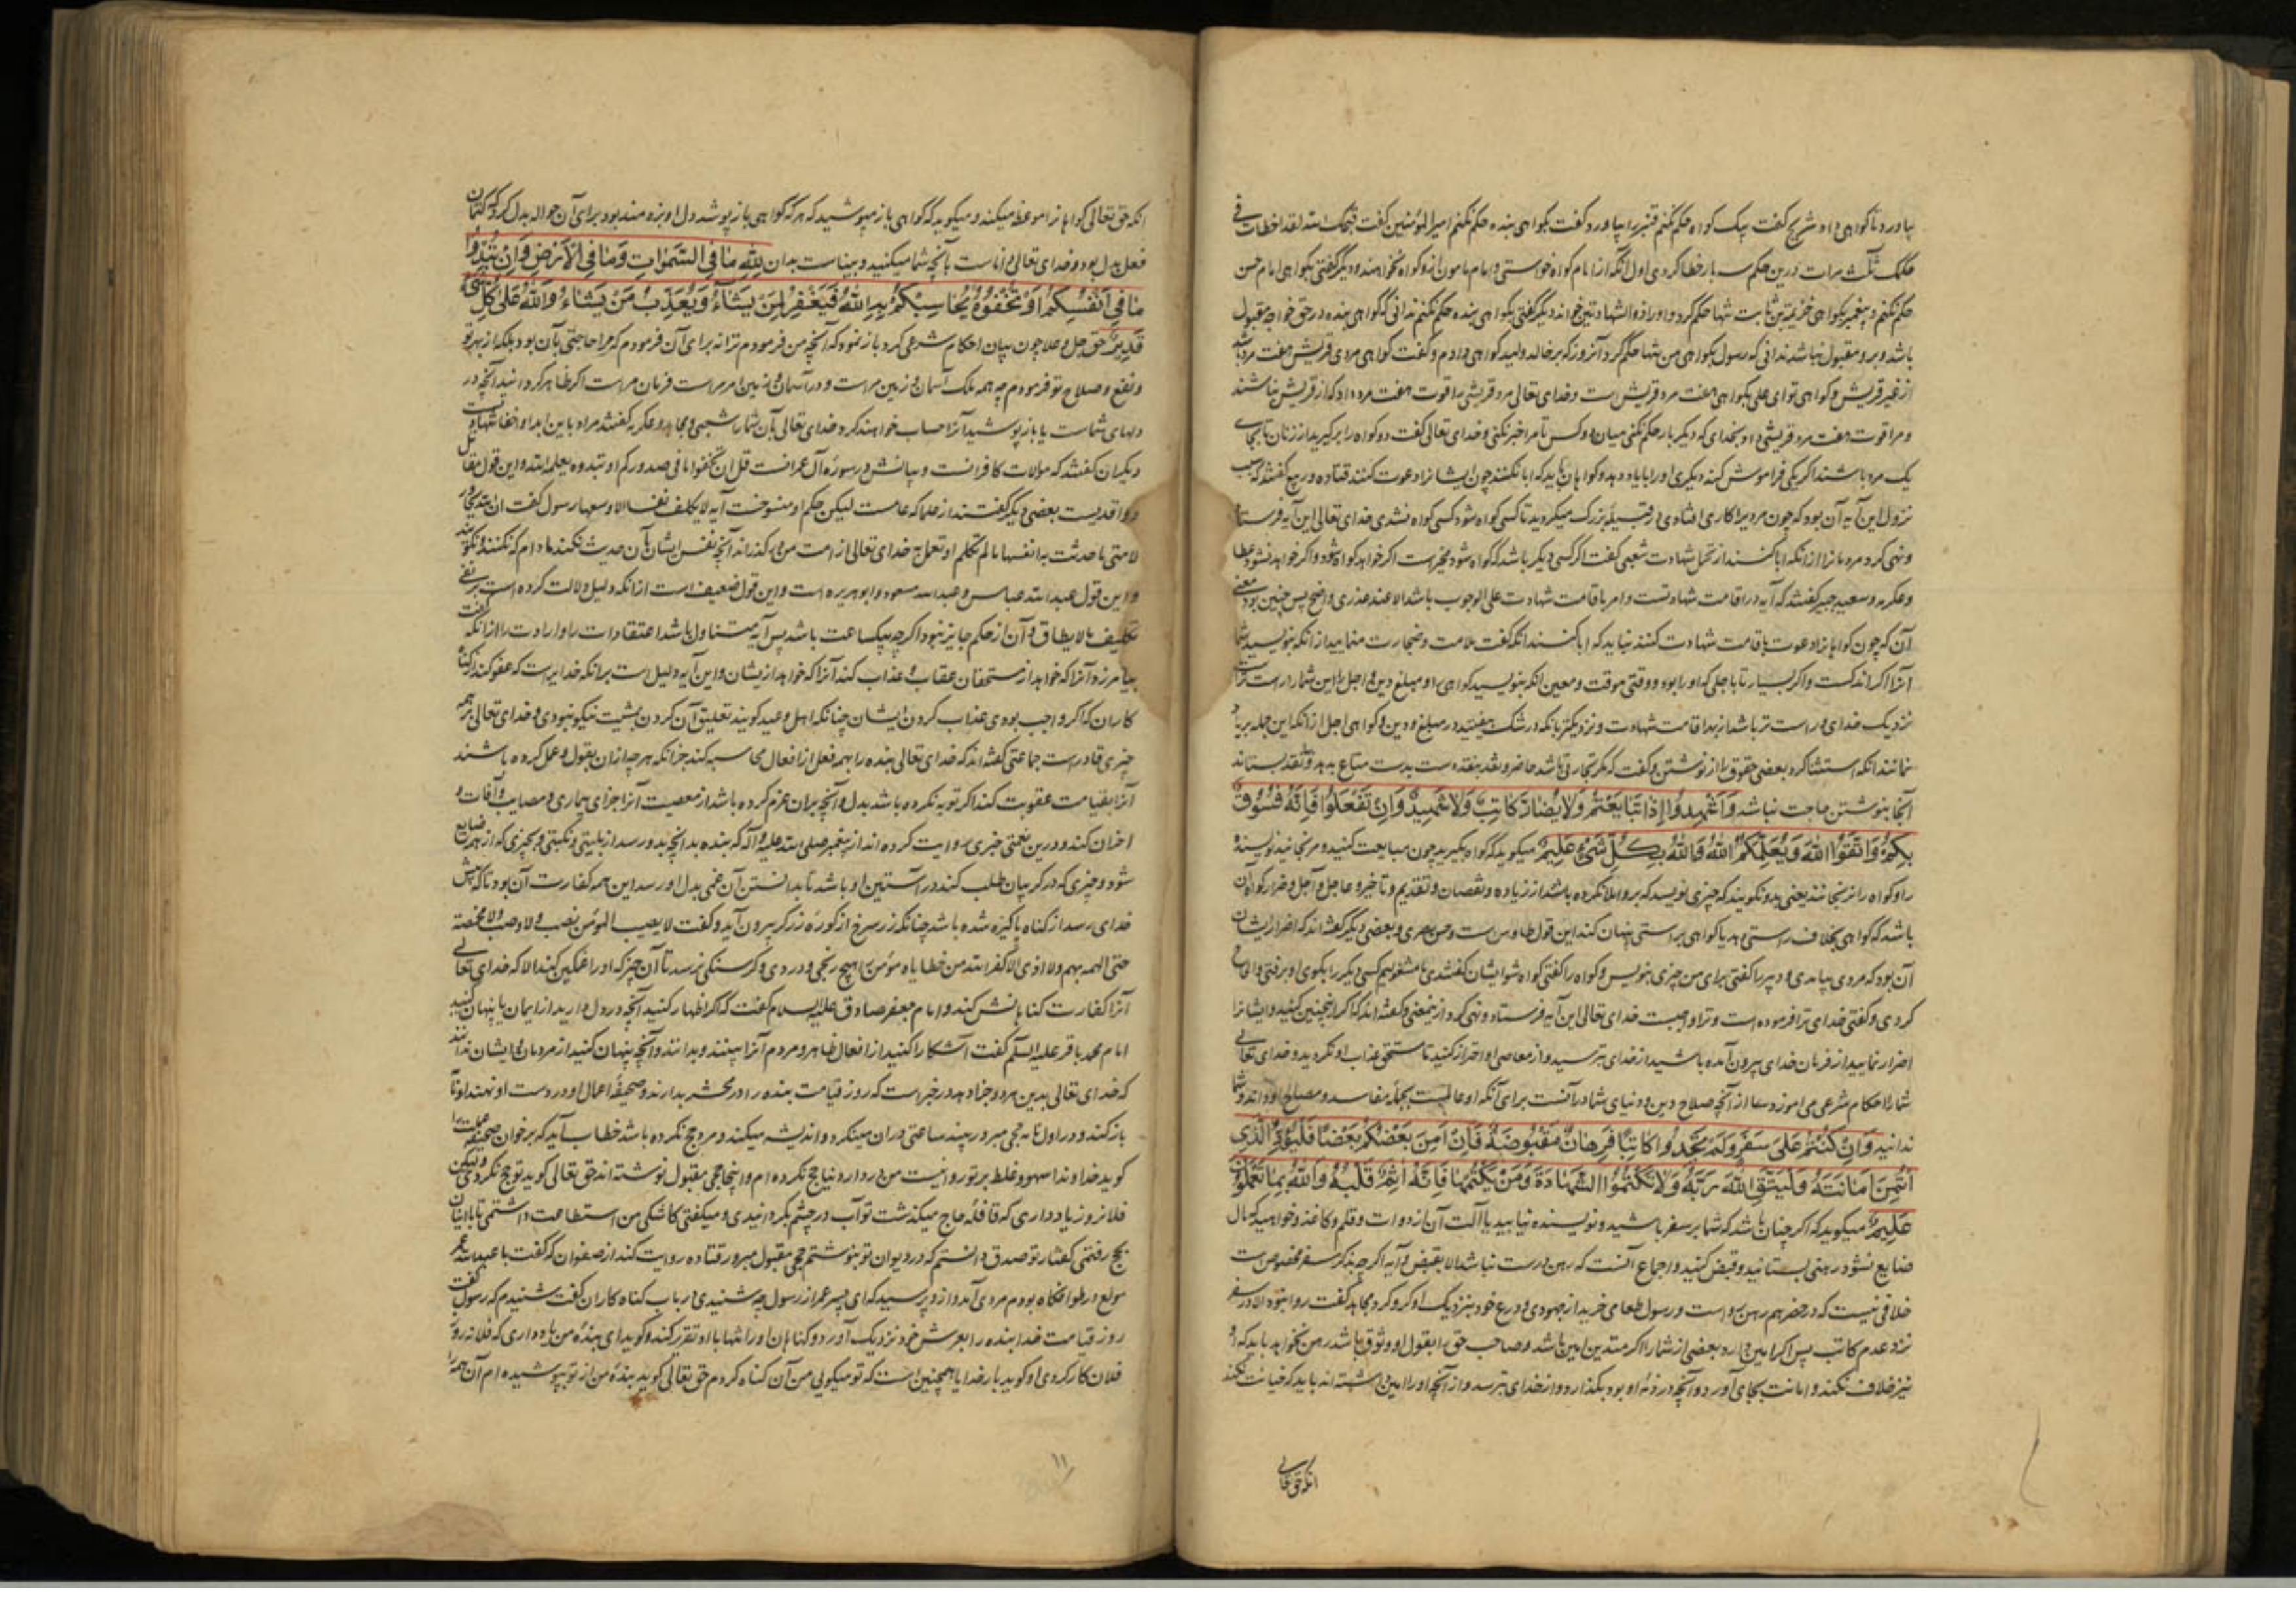 بیاورد تا گواهی داد شریح گفت بیک گواه حکم نکنم قنبر را بیاورد گفت بگواهی بنده حکم نکنم امیرالمؤمنین گفت قبحک الله لقد اخطات فی
حکمک ثلث مرات درین حکم سه بار خطا کردی اول آنکه از امام گواه خواستی و امام مامون ازو گواه نخواهند و دیگر گفتی بگواهی امام حسن
حکم نکنم و پیغمبر بگواهی خزیمة بن ثابت تنها حکم کرد و او را ذو الشهادتین خواند دیگر گفتی بگواهی بنده حکم نکنم ندانی که گواهی بنده در حق خواجه مقبول
باشد و برو مقبول نباشد ندانی که رسول بگواهی من تنها حکم کرد آنروز که بر خالد ولید گواهی دادم و گفت گواهی مردی قریش هفت مرد باشد
از غیر قریش و گواهی تو ای علی بگواهی هفت مرد قریش است و خدای تعالی مرد قریشی را قوت هفت مرد داد که از قریش نباشند
و مرا قوت هفت مرد قریشی داد بخدای که دیگر بار حکم نکنی میان دو کس تا مرا خبر نکنی و خدای تعالی گفت دو گواه را برگیرید از زنان تا بجای
یک مرد باشند اگر یکی فراموش کند دیگری او را با یاد دهد و گواهان باید که ابا نکنند چون ایشانرا دعوت کنند قتاده و ربیع گفتند که سبب
نزول این آیه آن بود که چون مردیرا کاری افتادی در قبیله بزرک میکردید تا کسی گواه شود کسی گواه نشدی خدای تعالی این آیه فرستاد
و نهی کرد مردمانرا از آنکه ابا کنند از تحمل شهادت شعبی گفت اگر کسی دیگر باشد که گواه شود مخیر است اگر خواهد گواه شود و اگر خواهد نشود عطا
و عکرمه و سعید جبیر گفتند که آیه در اقامت شهادتست و امر باقامت شهادت علی الوجوب باشد الا عند عذری واضح پس چنین بود معنی
آن که چون گواهانرا دعوت باقامت شهادت کنند نباید که ابا کنند آنکه گفت ملامت و ضجارت منمایید از آنکه بنویسید شما
آنرا اگر اندکست و اگر بسیار تا باجلی که او را بود و وقتی موقت و معین آنکه بنویسید گواهی را و مبلغ دین و اجل را این شما را راست تر است
نزدیک خدای و راست تر باشد از بهر اقامت شهادت و نزدیکتر بانکه در شک نیفتید در مبلغ و دین و گواهی اجل از آنکه این جمله بر یاد
نمانند آنکه استثنا کرد بعضی حقوق را از نوشتن و گفت که مکر تجارتی باشد حاضر و نقد بنقد دست بدست متاع بدهد و نقد بستاند
آنجا بنوشتن حاجت نباشد وَاَشْهِدُوا إِذَا تَبَايَعْتُمْ وَلَا يُضَارَّ كَاتِبٌ وَلَا شَهِيدٌ وَاِنْ تَفْعَلُوا فَاِنَّهُ فُسُوقٌ
بِكُمْ وَاتَّقُوا اللهَ وَيُعَلِّمُكُمُ اللهُ وَاللهُ بِكُلِّ شَيْءٍ عَلِيمٌ میگوید که گواه بگیرید چون مبایعت کنید و مرنجانید نویسنده
را و گواه را نرنجانند یعنی بدو نگویند که چیزی نویسد که برو املا نکرده باشند از زیاده و نقصان و تقدیم و تاخیر و عاجل و آجل و ضرار گواهان
باشد که گواهی بخلاف راستی دهد یا گواهی براستی پنهان کند این قول طاوس است و حسن بصری و بعضی دیگر گفته‌اند که اضرار ایشان
آن بود که مردی بیامدی و دبیر را گفتی برای من چیزی بنویس و گواه را گفتی گواه شو ایشان گفتندی ما مشغولیم کسی دیگر را بگوی او برفتی و الحاح
کردی و گفتی خدای ترا فرموده است و ترا واجبست خدای تعالی این آیه فرستاد و نهی کرد ازینمعنی و گفته‌اند که اگر اینچنین کنید و ایشانرا
اضرار نمایید از فرمان خدای بیرون آمده باشید از خدای بترسید و از معاصی او احتراز کنید تا مستحق عذاب او نگردید و خدای تعالی
شما را احکام شرعی می‌آموزد و شما را از آنچه صلاح دین و دنیای شما در آنست برای آنکه او عالمست بجمله مفاسد و مصالح او داند و شما
ندانید وَاِنْ كُنْتُمْ عَلَى سَفَرٍ وَلَمْ تَجِدُوا كَاتِبًا فَرِهَانٌ مَقْبُوضَةٌ فَاِنْ اَمِنَ بَعْضُكُمْ بَعْضًا فَلْيُؤَدِّ الَّذِي
اؤْتُمِنَ اَمَانَتَهُ وَلْيَتَّقِ اللهَ رَبَّهُ وَلَا تَكْتُمُوا الشَّهَادَةَ وَمَنْ يَكْتُمْهَا فَاِنَّهُ اٰثِمٌ قَلْبُهُ وَاللهُ بِمَا تَعْمَلُونَ
عَلِيمٌ میگوید که اگر چنان باشد که شما بر سفر باشید و نویسنده نیابید یا آلت آن از دوات و قلم و کاغذ و خواهید که مال
ضایع نشود رهنی بستانید و قبض کنید و اجماع آنست که رهن درست نباشد الا بقبض و آیه اگر چه بذکر سفر مخصوص است
خلافی نیست که در حضر هم رهن رواست و رسول طعامی خرید از جهودی و درع خود بنزدیک او گرو کرد مجاهد گفت روا نبود الا در سفر
نزد عدم کاتب پس اگر امین دارد بعضی از شما را اگر متدین امین باشد و صاحب حق را بقول او وثوق باشد رهن نخواهد باید که او
نیز خلاف نکند و امانت بجای آورد و آنچه در ذمه او بود بگذارد و از خدای بترسد و از آنچه او را امین داشته‌اند باید که خیانت نکند
آنکه حق تعالی
آنکه حق تعالی گواهانرا موعظه میکند و میگوید که گواهی باز مپوشید که هر که گواهی باز پوشد دل او بزه‌مند بود برای آن حواله بدل کرد که کتمان
فعل دل بود و خدای تعالی داناست بآنچه شما میکنید و بیناست بدان لِلّٰهِ مَا فِي السَّمٰوَاتِ وَمَا فِي الْاَرْضِ وَاِنْ تُبْدُوا
مَا فِي اَنْفُسِكُمْ اَوْ تُخْفُوهُ يُحَاسِبْكُمْ بِهِ اللهُ فَيَغْفِرُ لِمَنْ يَشَاءُ وَيُعَذِّبُ مَنْ يَشَاءُ وَاللهُ عَلٰى كُلِّ شَيْءٍ
قَدِيرٌ حق جل و علا چون بیان احکام شرعی کرد باز نمود که آنچه من فرمودم نه برای آن فرمودم که مرا حاجتی بآن بود بلکه از بهر تو
و نفع و صلاح تو فرمودم چه همه ملک آسمان و زمین مراست و در آسمان و زمین امر مراست فرمان مراست اگر ظاهر گردانید آنچه در
دلهای شماست یا باز پوشید آنرا حساب خواهند کرد خدای تعالی بآن شما را شعبی و مجاهد و عکرمه گفتند مراد باین ابدا و اخفا شهادتست
دیگران گفتند که موالات کافرانست و بیانش در سوره آل عمرانست قل ان تخفوا ما فی صدورکم او تبدوه یعلمه الله و این قول مقاتل
و واقدیست بعضی دیگر گفتند از علما که عامست لیکن حکم او منسوخست آیه لا یکلف نفسا الا وسعها رسول گفت ان الله تجاوز
لامتی ما حدثت به انفسها ما لم تکلم او تعمل به خدای تعالی از امت من در گذراند آنچه نفس ایشان بآن حدیث کند مادام که نکنند و نگویند
و این قول عبدالله عباس و عبدالله مسعود و ابو هریره است و این قول ضعیف است از آنکه دلیل دلالت کرده است بر نفی
تکلیف ما لا یطاق و آن از حکیم جایز نبود اگر چه بیکساعت باشد پس آیه متناول باشد اعتقادات را و ارادت را از آنکه گفت
بیامرزد آنرا که خواهد از مستحقان عقاب و عذاب کند آنرا که خواهد ازیشان و این آیه دلیل است بر آنکه خدایراست که عفو کند گناه
کاران که اگر واجب بودی عذاب کردن ایشان چنانکه اهل وعید گویند تعلیق آن کردن بمشیت نیکو نبودی و خدای تعالی بر همه
چیزی قادر است جماعتی گفته‌اند که خدای تعالی بنده را بهمه فعل از افعال محاسبه کند جز آنکه هر چه از آن بقول و عمل کرده باشند
آنرا بقیامت عقوبت کند اگر توبه نکرده باشد بدل و آنچه بر آن عزم کرده باشد از معصیت آنرا جزای بیماری و مصایب و آفات و
احزان کند و درین معنی خبری روایت کرده‌اند از پیغمبر صلی الله علیه و آله که بنده بدانچه بدو رسد از بلیتی و نکبتی و چیزی که از بهر ضایع
شود و چیزی که در گریبان طلب کند در آستین او باشد تا بدانستن آن غمی بدل او رسد این همه کفارت آن بود تا که پیش
خدای رسد از گناه پاکیزه شده باشد چنانکه زر سرخ از کوره زرگر بیرون آید و گفت لا یصیب المؤمن نصب و لا وصب و لا مخمصة
حتی الهم یهم و لا اذی الا کفر الله من خطایاه مؤمن را هیچ رنجی و دردی و گرسنگی نرسد تا آن چیز که او را غمگین کند الا که خدای تعالی
آنرا کفارت گناهانش کند و امام جعفر صادق علیه السلام گفت که اگر اظهار کنید آنچه در دل دارید از ایمان یا پنهان کنید
امام محمد باقر علیه السلم گفت آشکارا کنید از افعال ظاهر و مردم آنرا ببینند و بدانند و آنچه پنهان کنید از مردمان و ایشان ندانند
که خدای تعالی بدین هر دو جزا دهد در خبر است که روز قیامت بنده را در محشر بدارند و صحیفه اعمال او در دست او نهند او تا
باز کند و در اول نامه حجی مبرور بیند ساعتی در آن مینگرد و اندیشه میکند و مرد حج نکرده باشد خطاب آید که بر خوان صحیفه عملت را
گوید خداوندا سهو و غلط بر تو روا نیست من در دار دنیا حج نکرده‌ام و اینجا حجی مقبول نوشته‌اند حق تعالی گوید تو حج نکردی ولیکن
فلان روز یاد داری که قافله حاج میگذشت تو آب در چشم بگردانیدی و میگفتی کاشکی من استطاعت داشتمی تا با اینان
بحج رفتمی گفتار تو صدق دانستم که در دیوان تو بنوشتم حجی مقبول مبرور قتاده روایت کند از صفوان که گفت با عبدالله عمر
مولع در طوافگاه بودم مردی آمد و ازو پرسید که ای پسر عمر از رسول چه شنیدی در باب گناه‌کاران گفت شنیدم که رسول گفت
روز قیامت خدا بنده را بعرش خود نزدیک آورد و گناهان او را تنها با او تقریر کند و گوید ای بنده من یاد داری که فلان روز
فلان کار کردی او گوید بار خدایا همچنین است که تو میگویی من آن گناه کردم حق تعالی گوید بنده من از تو بپوشیده‌ام آن همه را
۱۱